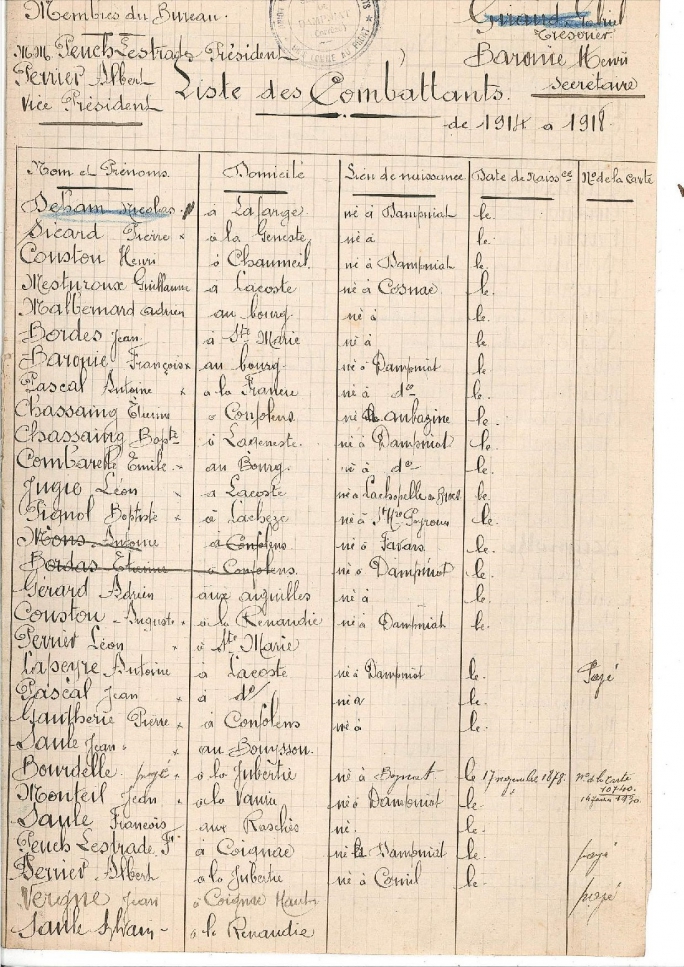 Membres du Bureau.
MM. Peuch Lestrade Président
Perrier Albert
Vice Président
Trésorier
Baronie Henri
Secrétaire
Liste des Combattants.
de 1914 a 1918
Nom et Prénoms. Domicilé Lieu de naissance Date de Naiss ce No de la Carte
Nicolas à Lafarge né à Dampniat le.
Sicard Pierre x à la Geneste né à le.
Couston Henri à Chaumeil. né à Dampniat le.
Mesturoux Guillaume a Lacoste né à Cosnac le.
Malbernard Adrien au bourg. né à le.
Bordes Jean à Ste Marie né à le.
Baronie François x au bourg né à Dampniat le.
Pascal Antoine x a la Franeu né à do le.
Chassaing Étienne à Consolens né à aubazine le.
Chassaing Bapte à Lageneste. né à Dampniat le.
Combarelle Émile x au Bourg. né à do le.
Jugie Léon x a Lacoste né a Lachapelle le.
Pignol Baptiste x à Lacheze né à le.
Mons Antoine à Consolens né à Favars. le.
Bordas Étienne à Consolens. né à Dampniat le.
Gérard Adrien aux aiguilles né à le.
Couston Auguste x a la Renaudie né à Dampniat le.
Perrier Léon x à Ste Marie
Lapeyre Antoine à Lacoste né à Dampniat le. Payé
Pascal Jean x à do né a le.
Gautherie Pierre x à Consolens né à le.
Saule Jean x au Bouysson.
Bourdelle payé x a la Jubertie né à Beynat. le 17 novembre 1878. No de la Carte
10740.
Monteil Jean x a la né à Dampniat le.
Saule Francois aux Rasches né. le.
Peuch Lestrade Fs à Coignac né à Dampniat le. payé
Perrier Albert a la Jubertie né à Cornil le.
Vergne Jean à Coignac Haut payé
Saule a la Renaudie